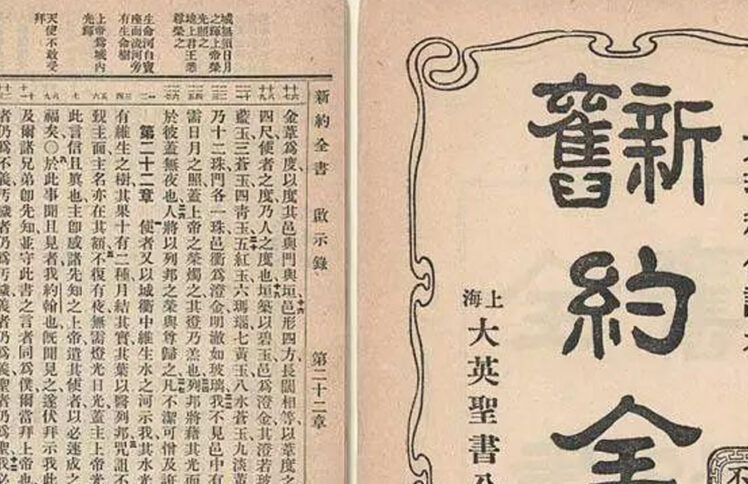 新舊
約
全
上海
大英聖書
新約全書 啟示錄 第二十二章
城無須日月
之輝上帝榮
光照之
地上君王悉
尊榮之
生命河自寶
座而流河旁
有生命樹
上帝爲城內
光輝
天使不敢受
拜
金葦爲度以度其邑與門與垣邑形四方長闊相等以葦度之
四尺使者之度乃人之度也垣築以碧玉邑爲澄金其澄若玻
藍玉三蒼玉四青玉五紅玉六瑪瑙七黃玉八水蒼玉九淡黃
乃十二珠門各一珠邑衢爲澄金明澈如玻璃我不見邑中有
需日月之照蓋上帝之榮燭之其燈乃羔也列邦將藉其光而
於彼蓋無夜也人將以列邦之榮與尊歸之凡不潔可憎及
第二十二章 使者又以城衢中維生水之河示我其水光
有維生之樹其果十有二種月結其實其葉以醫列邦咒詛不
我主面主名亦在其額不復有夜無需燈光日光蓋主上帝光
此言信且眞也主卽感諸先知之上帝遣其使者以必速成之
福矣〇於此事聞且見者我約翰也旣聞見之遂伏拜示我此
及爾諸兄弟卽先知並守此書之言者同爲僕爾當拜上帝也
者仍爲不義污穢者仍爲污穢義者仍爲義聖者仍爲聖我必